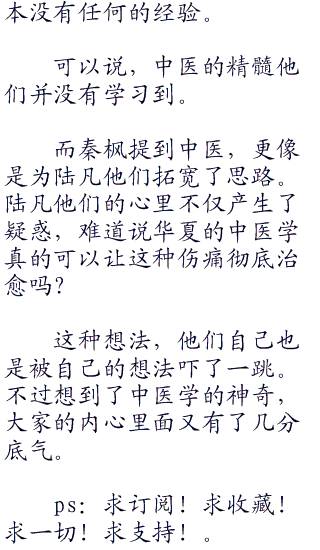 本没有任何的经验。
可以说，中医的精髓他
们并没有学习到。
而秦枫提到中医，更像
是为陆凡他们拓宽了思路。
陆凡他们的心里不仅产生了
疑惑，难道说华夏的中医学
真的可以让这种伤痛彻底治
愈吗？
这种想法，他们自己也
是被自己的想法吓了一跳。
不过想到了中医学的神奇，
大家的内心里面又有了几分
底气。
ps：求订阅！求收藏！
求一切！求支持！。